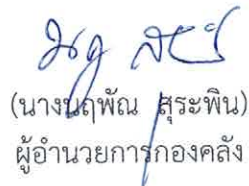 (นางนฤพัณ สุระพิน)
ผู้อำนวยการกองคลัง